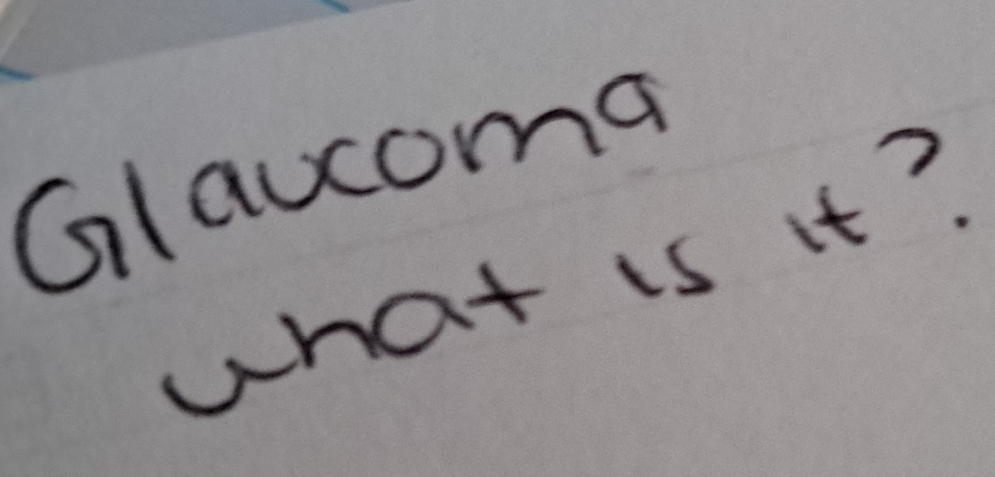 Glaucoma
what is it?